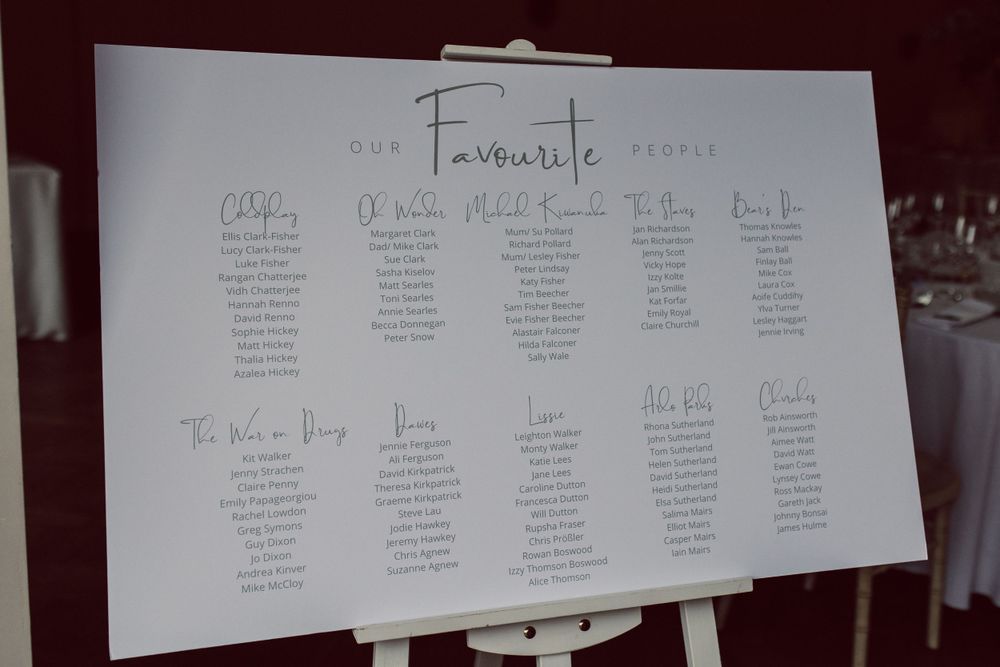 OUR Favourite PEOPLE
Coldplay
Ellis Clark-Fisher
Lucy Clark-Fisher
Luke Fisher
Rangan Chatterjee
Vidh Chatterjee
Hannah Renno
David Renno
Sophie Hickey
Matt Hickey
Thalia Hickey
Azalea Hickey
Oh Wonder
Margaret Clark
Dad/ Mike Clark
Sue Clark
Sasha Kiselov
Matt Searles
Toni Searles
Annie Searles
Becca Donnegan
Peter Snow
Michael Kiwanuka
Mum/ Su Pollard
Richard Pollard
Mum/ Lesley Fisher
Peter Lindsay
Katy Fisher
Tim Beecher
Sam Fisher Beecher
Evie Fisher Beecher
Alastair Falconer
Hilda Falconer
Sally Wale
The Staves
Jan Richardson
Alan Richardson
Jenny Scott
Vicky Hope
Izzy Kolte
Jan Smillie
Kat Forfar
Emily Royal
Claire Churchill
Bear's Den
Thomas Knowles
Hannah Knowles
Sam Ball
Finlay Ball
Mike Cox
Laura Cox
Aoife Cuddihy
Ylva Turner
Lesley Haggart
Jennie Irving
The War on Drugs
Kit Walker
Jenny Strachen
Claire Penny
Emily Papageorgiou
Rachel Lowdon
Greg Symons
Guy Dixon
Jo Dixon
Andrea Kinver
Mike McCloy
Dawes
Jennie Ferguson
Ali Ferguson
David Kirkpatrick
Theresa Kirkpatrick
Graeme Kirkpatrick
Steve Lau
Jodie Hawkey
Jeremy Hawkey
Chris Agnew
Suzanne Agnew
Lissie
Leighton Walker
Monty Walker
Katie Lees
Jane Lees
Caroline Dutton
Francesca Dutton
Will Dutton
Rupsha Fraser
Chris Prößler
Rowan Boswood
Izzy Thomson Boswood
Alice Thomson
Arlo Parks
Rhona Sutherland
John Sutherland
Tom Sutherland
Helen Sutherland
David Sutherland
Heidi Sutherland
Elsa Sutherland
Salima Mairs
Elliot Mairs
Casper Mairs
Iain Mairs
Chvrches
Rob Ainsworth
Jill Ainsworth
Aimee Watt
David Watt
Ewan Cowe
Lynsey Cowe
Ross Mackay
Gareth Jack
Johnny Bonsai
James Hulme